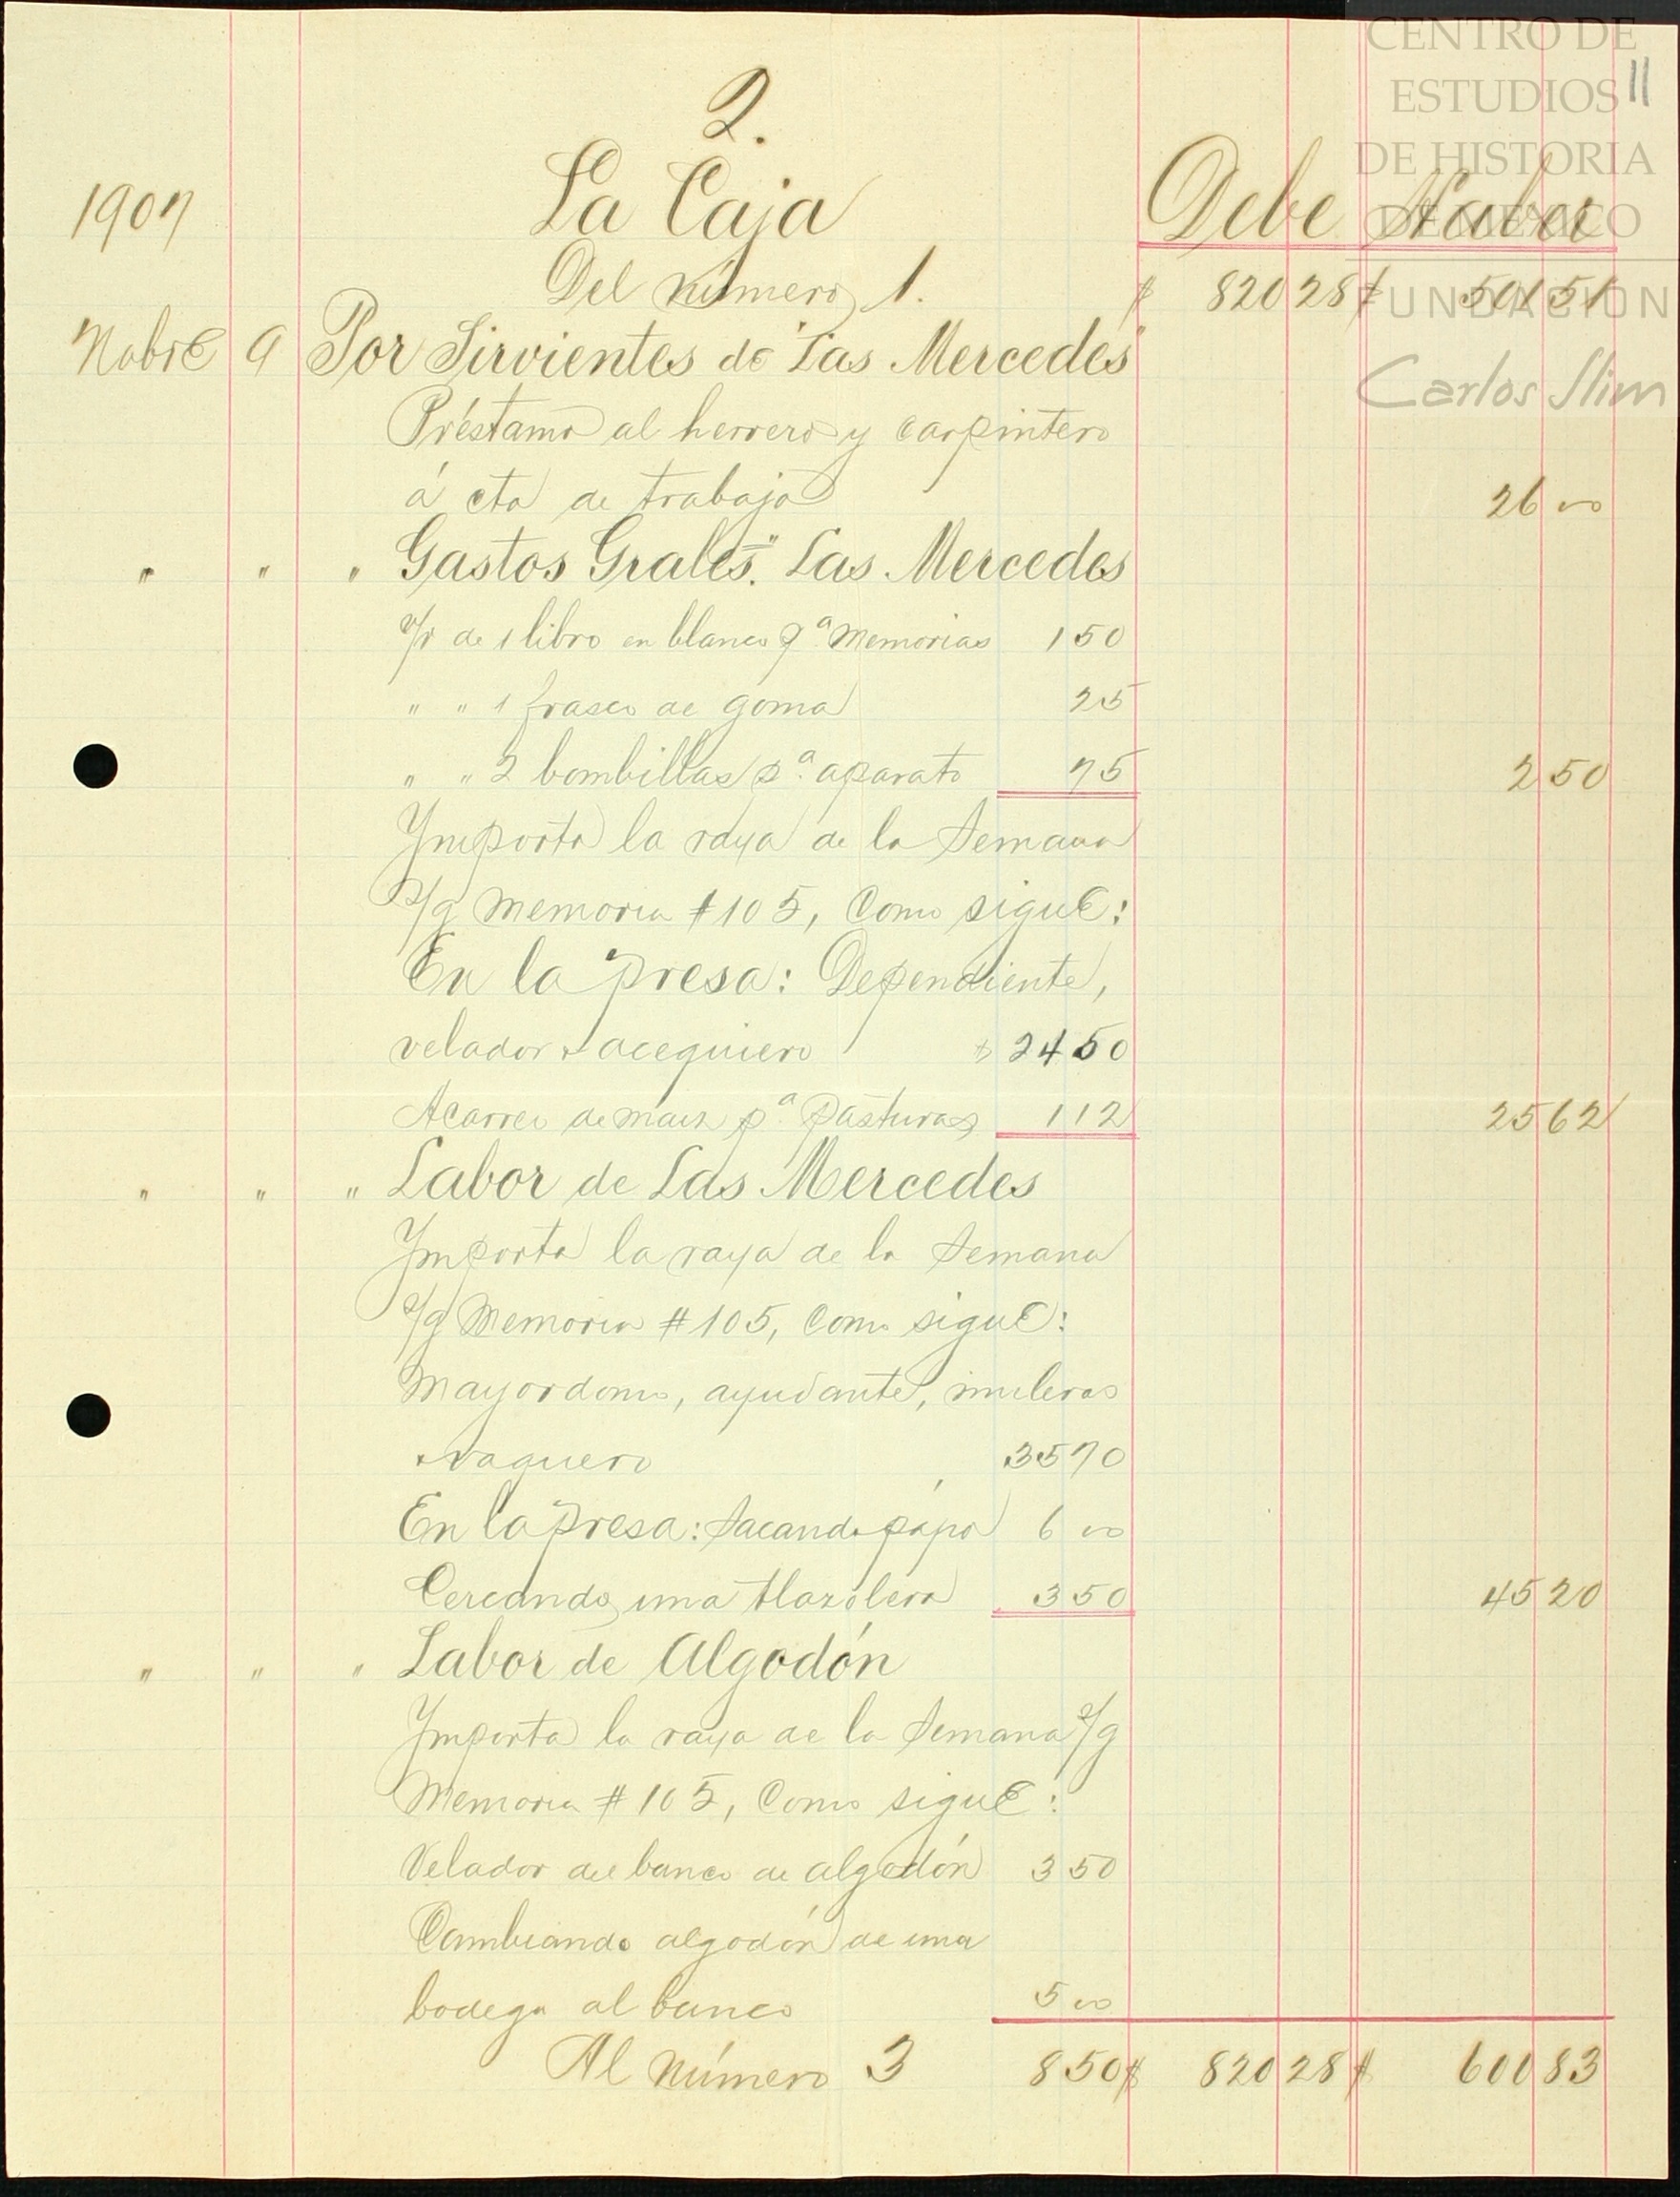 CENTRO DE
ESTUDIOS 11
DE HISTORIA
DE MEXICO
FUNDACIÓN
Carlos Slim
2.
1907 La Caja Debe Haber
Del número 1. $ 820 28 $ 501 51
Nobre 9 Por Sirvientes de "Las Mercedes"
Préstamo al herrero y carpintero
á cta de trabajo 26 00
" " " Gastos Grales. "Las Mercedes
v/r de 1 libro en blanco pª Memorias 1 50
" " 1 frasco de goma 25
" " 2 bombillas pª aparato 75 2 50
Ymporta la raya de la Semana
s/g Memoria #105, Como sigue:
En la presa: Dependiente,
velador + acequiero $ 24 50
Acarreo de maiz pª pasturas 1 12 25 62
" " " Labor de Las Mercedes
Ymporta la raya de la Semana
s/g Memoria #105, Como sigue:
Mayordomo, ayudante, muleros
+ vaquero 35 70
En la presa: Sacando papa 6 00
Cercando una tlazolera 3 50 45 20
" " " Labor de Algodón
Ymporta la raya de la Semana s/g
Memoria #105, Como sigue:
Velador del banco de algodón 3 50
Cambiando algodón de una
bodega al banco 5 00
Al número 3 8 50 $ 820 28 $ 600 83